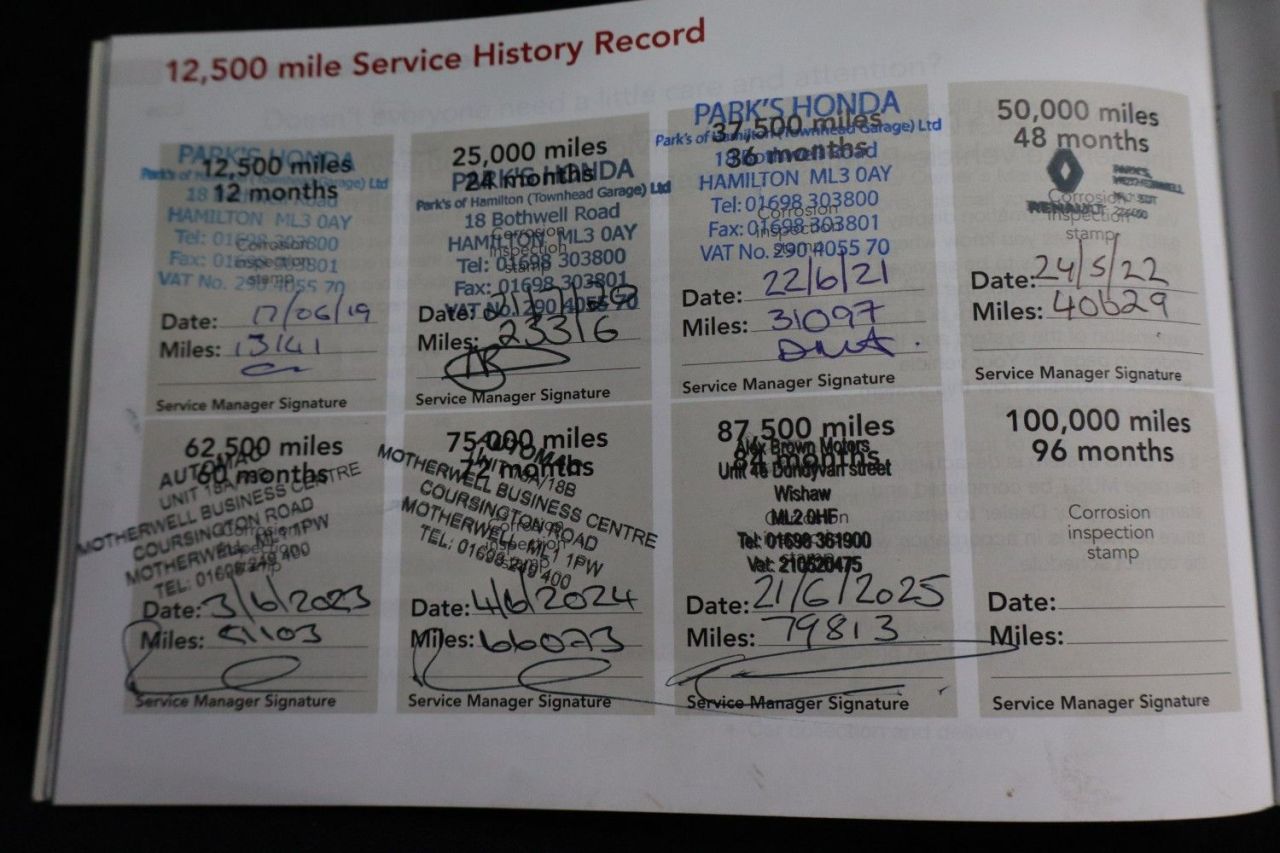 12,500 mile Service History Record
PARK'S HONDA
12,500 miles
Park's of Hamilton (Townhead Garage) Ltd
12 months
18 Bothwell Road
HAMILTON ML3 0AY
Tel: 01698 303800
Corrosion
Fax: 01698 303801
inspection
stamp
VAT No. 290 4055 70
Date: 17/06/19
Miles: 13141
Service Manager Signature
25,000 miles
PARK'S HONDA
24 months
Park's of Hamilton (Townhead Garage) Ltd
18 Bothwell Road
Corrosion
HAMILTON ML3 0AY
inspection
Tel: 01698 303800
stamp
Fax: 01698 303801
VAT No. 290 4055 70
Date:
Miles: 23316
Service Manager Signature
PARK'S HONDA
37,500 miles
Park's of Hamilton (Townhead Garage) Ltd
36 months
18 Bothwell Road
HAMILTON ML3 0AY
Tel: 01698 303800
Corrosion
Fax: 01698 303801
inspection
stamp
VAT No. 290 4055 70
Date: 22/6/21
Miles: 31097
Service Manager Signature
50,000 miles
48 months
PARK'S
MOTHERWELL
Corrosion
RENAULT
inspection
stamp
Date: 24/5/22
Miles: 40629
Service Manager Signature
62,500 miles
AUTOMAC
60 months
UNIT 18A/18B
MOTHERWELL BUSINESS CENTRE
COURSINGTON ROAD
Corrosion
MOTHERWELL, ML1 1PW
inspection
stamp
TEL: 01698 249 400
Date: 3/6/2023
Miles: 51103
Service Manager Signature
75,000 miles
AUTOMAC
72 months
UNIT 18A/18B
MOTHERWELL BUSINESS CENTRE
COURSINGTON ROAD
Corrosion
MOTHERWELL, ML1 1PW
inspection
stamp
TEL: 01698 249 400
Date: 4/6/2024
Miles: 66073
Service Manager Signature
87,500 miles
Alex Brown Motors
84 months
Unit Dondyvan street
Wishaw
ML2 0HF
Corrosion
Tel: 01698 361900
inspection
stamp
Vat: 210520475
Date: 21/6/2025
Miles: 79813
Service Manager Signature
100,000 miles
96 months
Corrosion
inspection
stamp
Date:
Miles:
Service Manager Signature